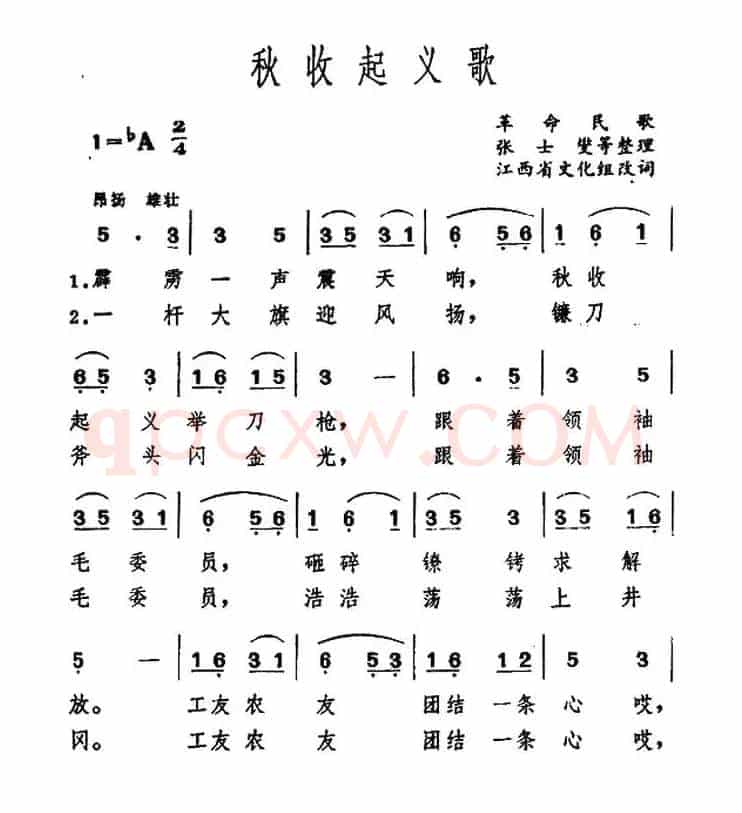 秋收起义歌
1=♭A 2/4
革命民歌
张士燮等整理
江西省文化组改词
昂扬 雄壮
5 · 3 | 3 5 | 35 31 | 6 56 | 1 6 1 |
1.霹雳一声震天响，秋收
2.一杆大旗迎风扬，镰刀
65 3 | 16 15 | 3 — | 6 · 5 | 3 5 |
起义举刀枪，跟着领袖
斧头闪金光，跟着领袖
qpcxw.COM
35 31 | 6 56 | 1 6 1 | 35 3 | 35 16 |
毛委员，砸碎镣铐求解
毛委员，浩浩荡荡上井
5 — | 16 31 | 6 53 | 16 12 | 5 3 |
放。工友农友团结一条心哎，
冈。工友农友团结一条心哎，